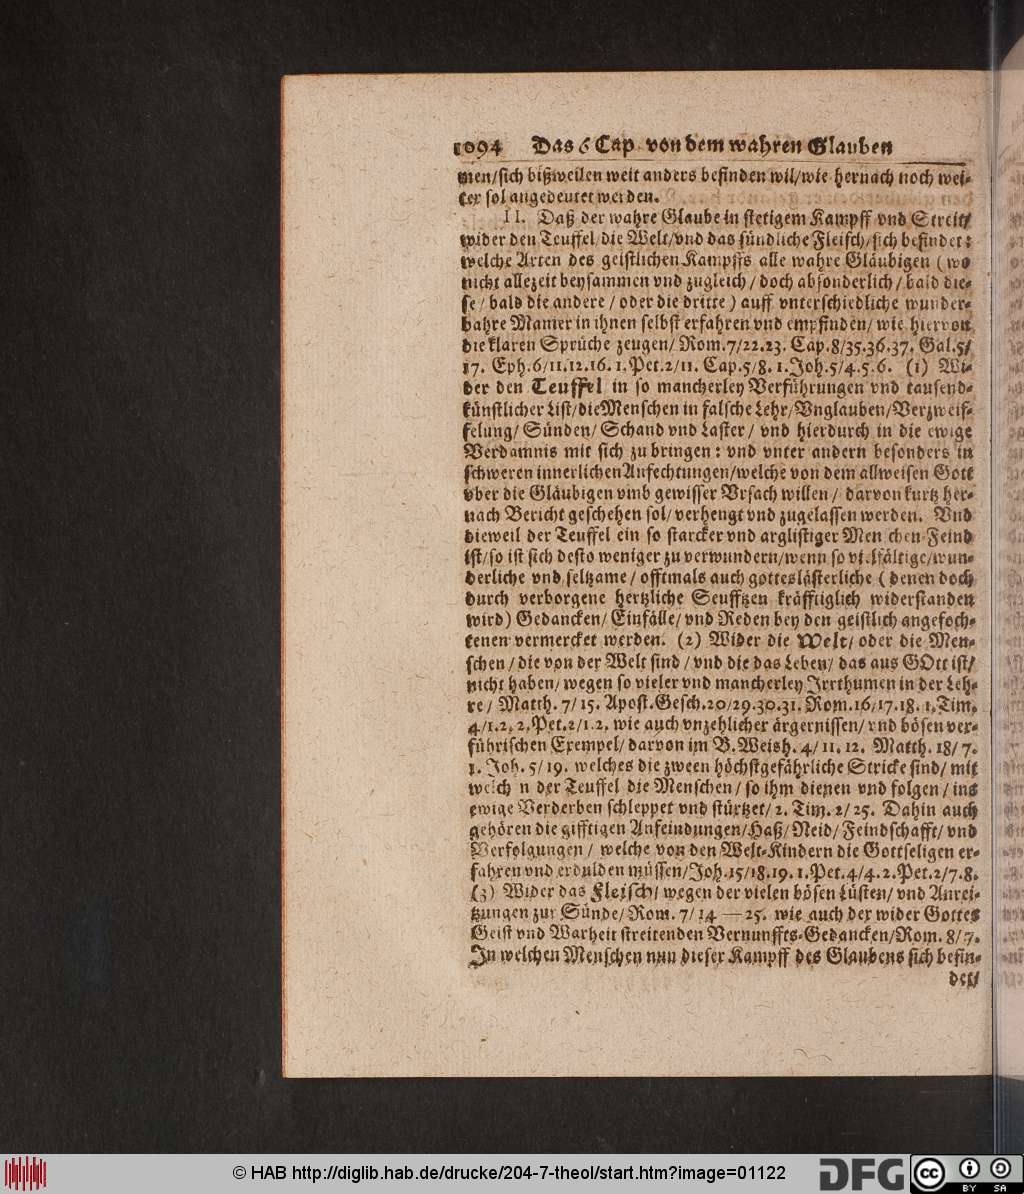 1094 Das 6 Cap. von dem wahren Glauben
men/sich bißweilen weit anders befinden wil/wie hernach noch wei-
ter sol angedeutet werden.
II. Daß der wahre Glaube in stetigem Kampff vnd Streit/
wider den Teuffel/die Welt/vnd das sündliche Fleisch/sich befindet:
welche Arten des geistlichen Kampffs alle wahre Gläubigen (wo
nicht allezeit beysammen vnd zugleich/ doch absonderlich/ bald die-
se/ bald die andere/ oder die dritte) auff vnterschiedliche wunder-
bahre Manier in ihnen selbst erfahren vnd empfinden/ wie hiervon
die klaren Sprüche zeugen/ Rom.7/22.23. Cap.8/35.36.37. Gal.5/
17. Eph.6/11.12.16. 1.Pet.2/11. Cap.5/8. 1.Joh.5/4.5.6. (1) Wi-
der den Teuffel in so mancherley Verführungen vnd tausend-
künstlicher List/die Menschen in falsche Lehr/Vnglauben/Verzweif-
felung/ Sünden/ Schand vnd Laster/ vnd hierdurch in die ewige
Verdamnis mit sich zu bringen: vnd vnter andern besonders in
schweren innerlichen Anfechtungen/welche von dem allweisen Gott
vber die Gläubigen vmb gewisser Vrsach willen/ darvon kurtz her-
nach Bericht geschehen sol/ verhengt vnd zugelassen werden. Vnd
dieweil der Teuffel ein so starcker vnd arglistiger Men chen-Feind
ist/so ist sich desto weniger zu verwundern/wenn so vielfältige/wun-
derliche vnd seltzame/ offtmals auch gotteslästerliche (denen doch
durch verborgene hertzliche Seufftzen kräfftiglich widerstanden
wird) Gedancken/ Einfälle/ vnd Reden bey den geistlich angefoch-
tenen vermercket werden. (2) Wider die Welt/ oder die Men-
schen/ die von der Welt sind/ vnd die das Leben/ das aus GOtt ist/
nicht haben/ wegen so vieler vnd mancherley Irrthumen in der Leh-
re/ Matth. 7/ 15. Apost.Gesch.20/29.30.31. Rom.16/17.18. 1.Tim.
4/1.2. 2.Pet.2/1.2. wie auch vnzehlicher ärgernissen/ vnd bösen ver-
führischen Exempel/ darvon im B.Weish. 4/ 11. 12. Matth. 18/ 7.
1. Joh. 5/ 19. welches die zween höchstgefährliche Stricke sind/ mit
welch n der Teuffel die Menschen/ so ihm dienen vnd folgen/ ins
ewige Verderben schleppet vnd stürtzet/ 2. Tim. 2/ 25. Dahin auch
gehören die gifftigen Anfeindungen/Haß/ Neid/ Feindschafft/ vnd
Verfolgungen/ welche von den Welt-Kindern die Gottseligen er-
fahren vnd erdulden müssen/Joh.15/18.19. 1.Pet.4/4. 2.Pet.2/7.8.
(3) Wider das Fleisch/ wegen der vielen bösen Lüsten/ vnd Anrei-
tzungen zur Sünde/ Rom. 7/ 14 — 25. wie auch der wider Gottes
Geist vnd Warheit streitenden Vernunffts-Gedancken/Rom. 8/ 7.
In welchen Menschen nun dieser Kampff des Glaubens sich befin-
det/
© HAB http://diglib.hab.de/drucke/204-7-theol/start.htm?image=01122
DFG
cc BY SA